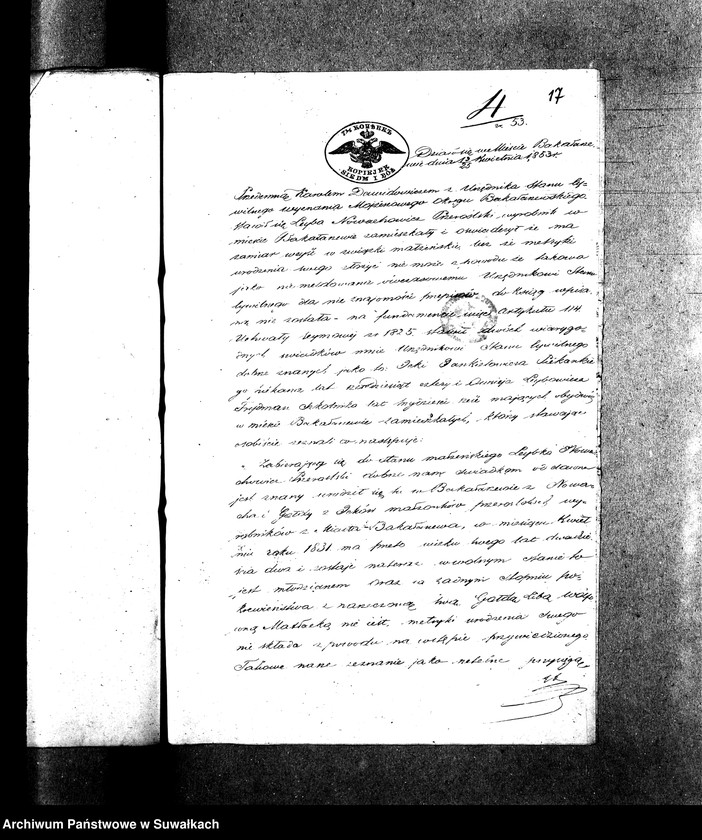 4 17
53.
7½ КОПѢЕКЪ
KOPIEJEK
SIEDM I PÓŁ
Działo się we Mieście Bakałarze
wie dnia 13/25 Kwietnia 1853 r.
Przedemną Karolem Dawidowiczem z. Urzędnika Stanu Cy
wilnego wyznania Mojżeszowego Okręgu Bakałarzewskiego
stawił się Leyba Nowachowicz Przeroślski, wyrobnik w
mieście Bakałarzewie zamieszkały i oświadczył że ma
zamiar wejść w związki małżeńskie lecz że metryki
urodzenia swego złożyć nie może z powodu że takowa
jako nie meldowana Urzędnikowi Stanu
Cywilnego dla nie znajomości przepisów do Ksiąg wpisa
ną nie została – na fundamencie więc Artykułu 114
Uchwały Seymowej z r. 1825. stawił dwóch wiarygo
dnych świadków mnie Urzędnikowi Stanu Cywilnego
dobrze znanych, jako to: Jankielowicza
lat cztery i Lejbowicza
Frejdman Szkolnika lat mających obydwóch
w mieście Bakałarzewie zamieszkałych, którzy stawając
osobiście zeznali co następuje:
„Zabierający się do stanu małżeńskiego Leybka Nowa
chowicz Przeroślski dobrze nam świadkom od dawna
jest znany urodził się tu w Bakałarzewie z Nowa
cha i Gołdy z Jnków małżonków przeroślskich wy
robników z Miasta Bakałarzewa, w miesiącu Kwiet
niu roku 1831 ma przeto wieku swego lat dwadzieś
cia dwa i zostaje na teraz w wolnym stanie to
jest młodzianem oraz w żadnym stopniu po
krewieństwa z narzeczoną swą Gołdą Libą
wną nie jest, metryki urodzenia swego
nie składa z powodu na wstępie przywiedzionego
Takowe nasze zeznanie jako rzetelne przysięgą